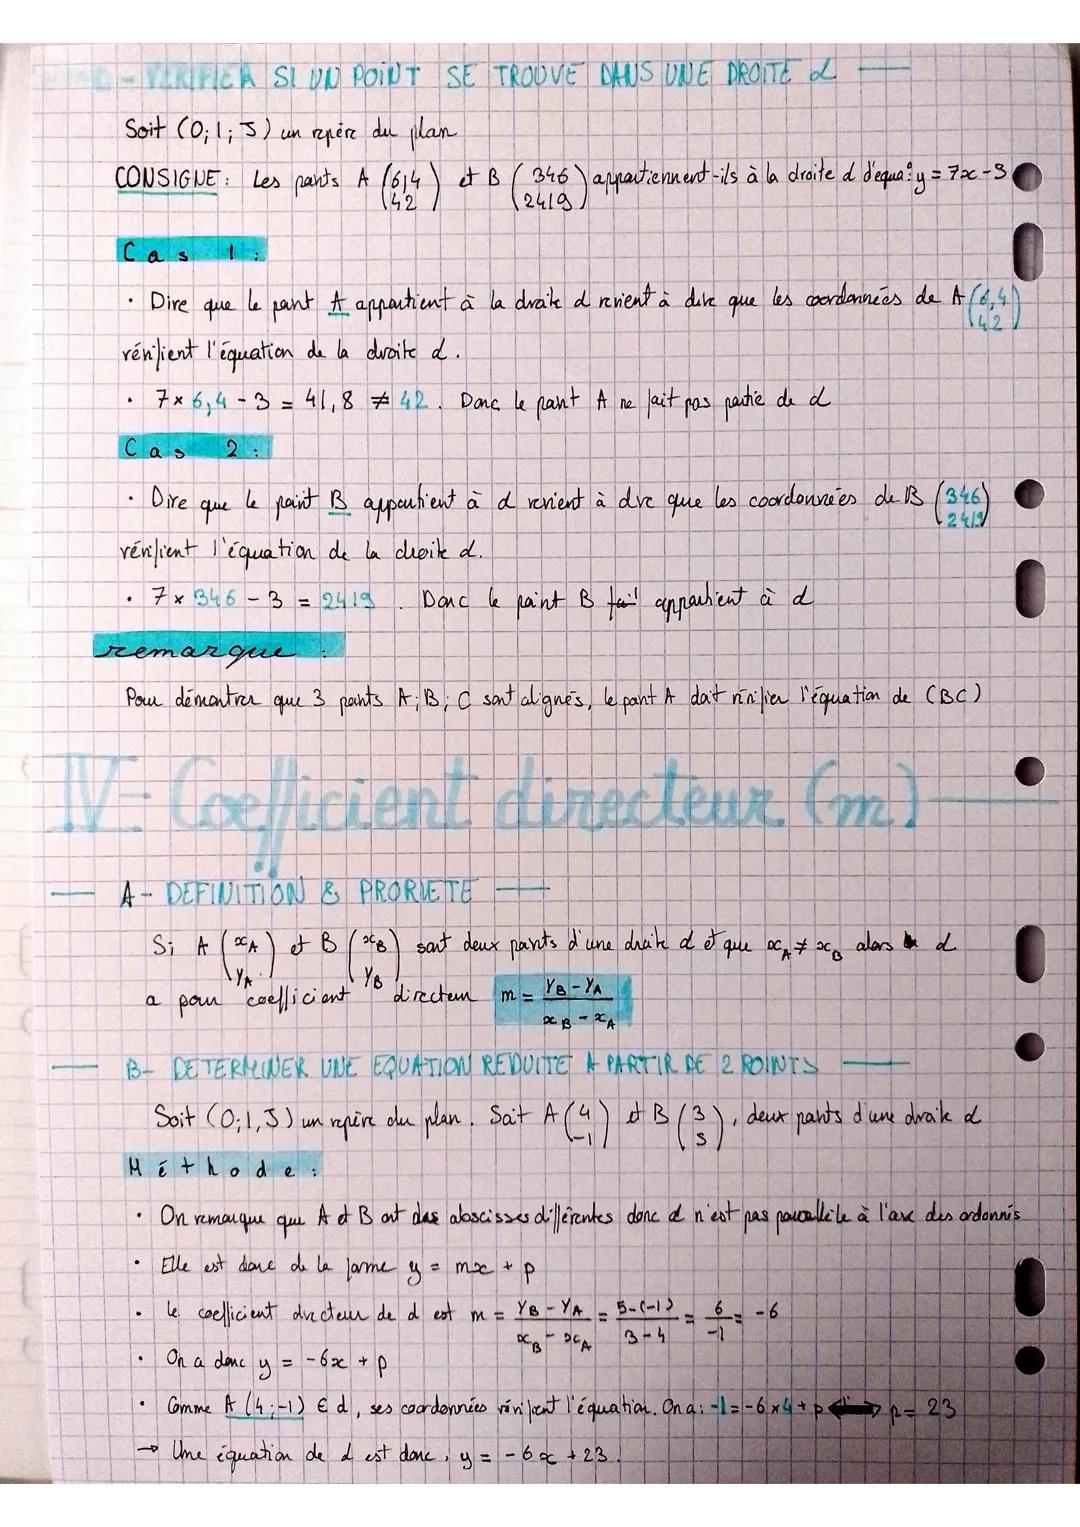 - VERIFIER SI UN POINT SE TROUVE DANS UNE DROITE d
Soit (O; I; J) un repère du plan
CONSIGNE: Les points A (6,4 42) et B (346 2419) appartiennent-ils à la droite d d'équa°: y = 7x - 3
Cas 1 :
• Dire que le point A appartient à la droite d revient à dire que les coordonnées de A (6,4 42)
vérifient l'équation de la droite d.
• 7 × 6,4 - 3 = 41,8 ≠ 42. Donc le point A ne fait pas partie de d
Cas 2 :
• Dire que le point B appartient à d revient à dire que les coordonnées de B (346 2419)
vérifient l'équation de la droite d.
• 7 × 346 - 3 = 2419. Donc le point B appartient à d
remarque :
Pour démontrer que 3 points A; B; C sont alignés, le point A doit vérifier l'équation de (BC)
IV- Coefficient directeur (m)
A- DEFINITION & PROPRIETE
Si A (xA yA) et B (xB yB) sont deux points d'une droite d et que xA ≠ xB alors d
a pour coefficient directeur m = yB - yA / xB - xA
B- DETERMINER UNE EQUATION REDUITE A PARTIR DE 2 POINTS
Soit (O; I, J) un repère du plan. Soit A (4 -1) et B (3 5), deux points d'une droite d
Méthode :
• On remarque que A et B ont des abscisses différentes donc d n'est pas parallèle à l'axe des ordonnés
• Elle est donc de la forme y = mx + p
• Le coefficient directeur de d est m = yB - yA / xB - xA = 5-(-1) / 3-4 = 6 / -1 = -6
• On a donc y = -6x + p
• Comme A (4;-1) ∈ d, ses coordonnées vérifient l'équation. On a: -1 = -6 × 4 + p ⟺ p = 23
→ Une équation de d est donc, y = -6x + 23.